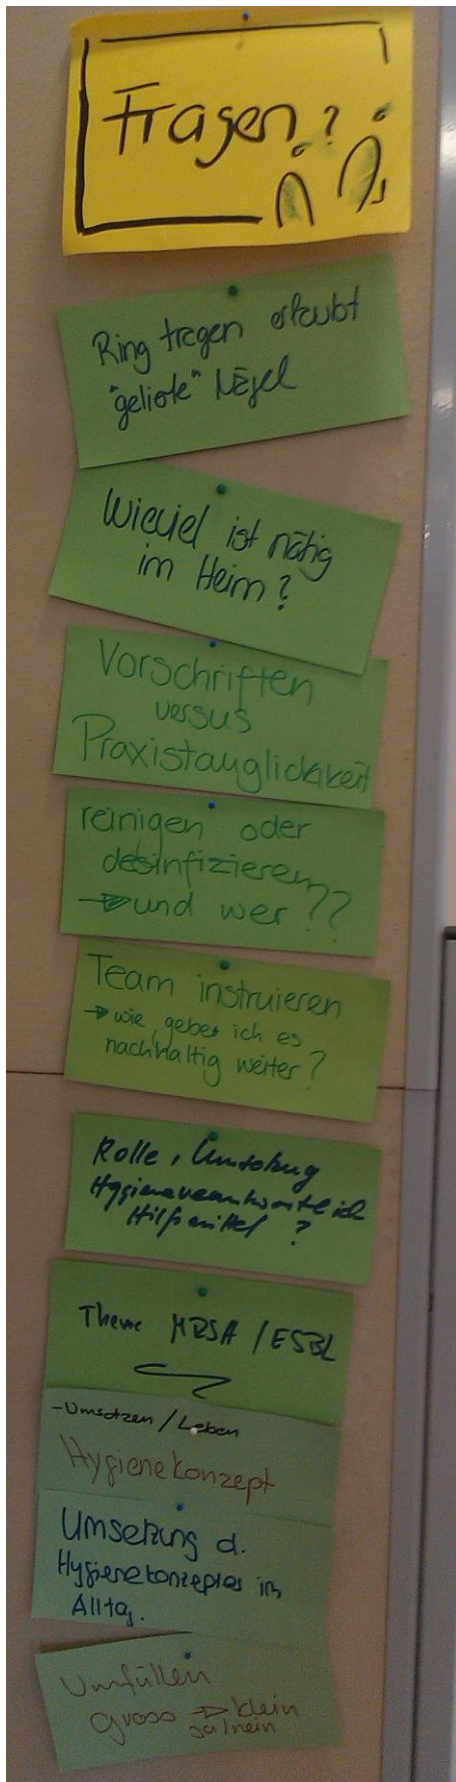 Fragen?
Ring tragen erlaubt
"gelierte" Nägel
Wieviel ist nötig
im Heim?
Vorschriften
versus
Praxistauglichkeit
reinigen oder
desinfizieren
→ und wer??
Team instruieren
→ wie geber ich es
nachhaltig weiter?
Rolle, Umsetzung
Hygieneverantwortlich
Hilfsmittel ?
Thema MRSA / ESBL
- Umsetzen / Leben
Hygienekonzept
Umsetzung d.
Hygienekonzeptes im
Alltag.
Umfüllen
gross → klein
ja/nein